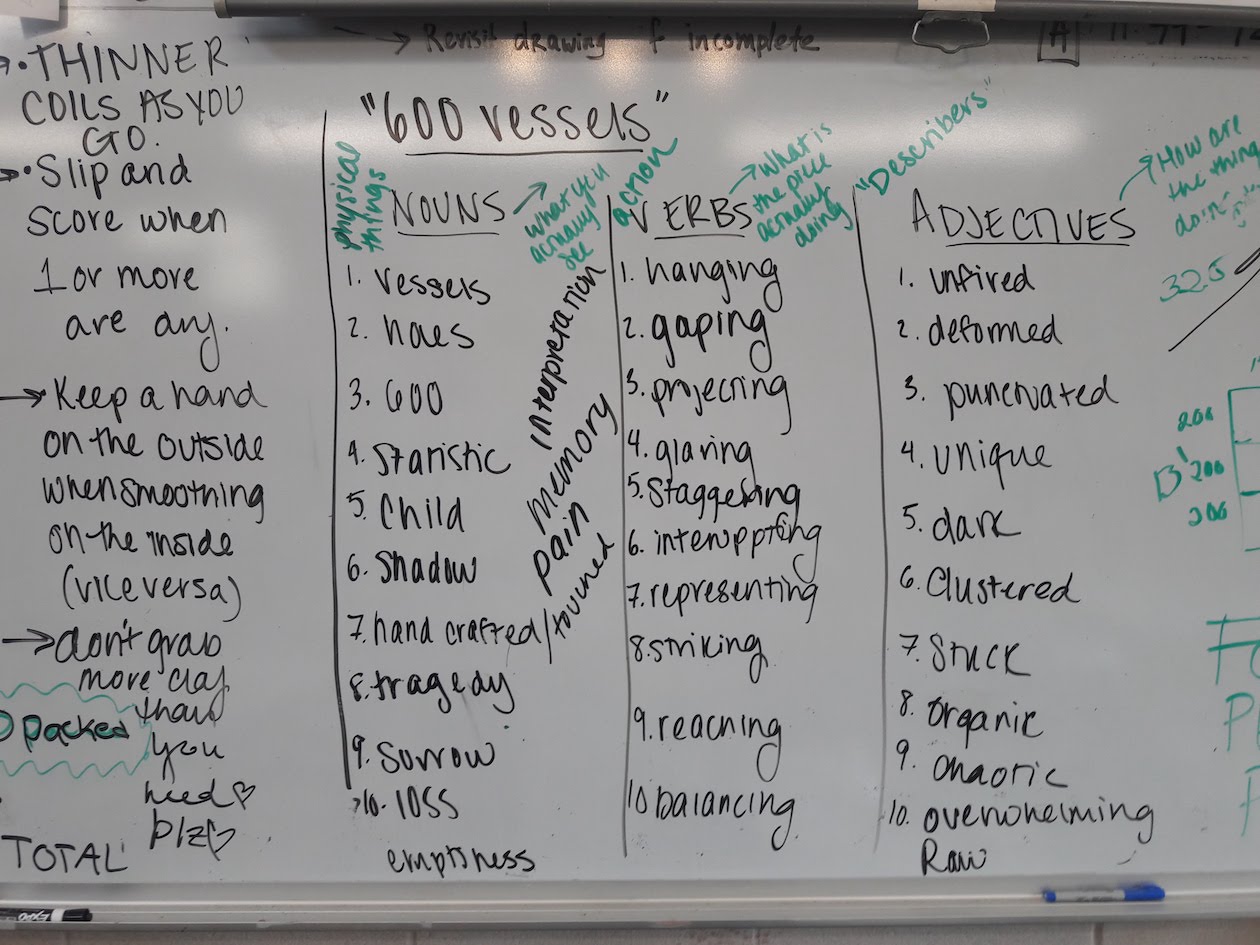 → Revisit drawing if incomplete
→ • THINNER
COILS AS YOU
GO.
→ • Slip and
score when
1 or more
are dry.
→ Keep a hand
on the outside
when smoothing
on the inside
(vice versa)
→ don't grab
more clay
than
you
need ♡
plz ♡
packed
TOTAL
"600 vessels"
physical
things
NOUNS
→ what you
actually
see
1. vessels
2. holes
3. 600
4. Statistic
5. Child
6. Shadow
7. hand crafted/touched
8. tragedy
9. Sorrow
10. loss
emptiness
interpretation
memory
pain
action
VERBS
→ What is
the piece
actually
doing
1. hanging
2. gaping
3. projecting
4. glaring
5. Staggering
6. interuppting
7. representing
8. striking
9. reaching
10 balancing
"Describers"
ADJECTIVES
→ How are
the thing
doin
1. unfired
2. deformed
3. punctuated
4. unique
5. dark
6. Clustered
7. Stuck
8. Organic
9. chaotic
10. overwhelming
Raw
A
32.5
200
B 200
200
EXPO